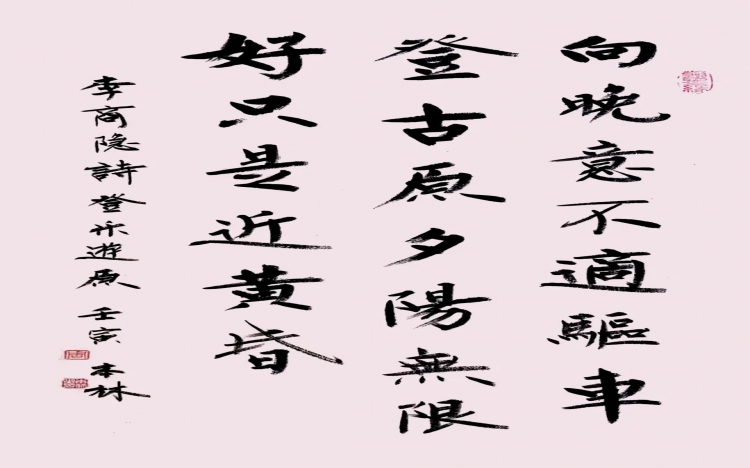 向晚意不適驅車
登古原夕陽無限
好只是近黄昏
李商隐詩登乐遊原 壬寅 本林